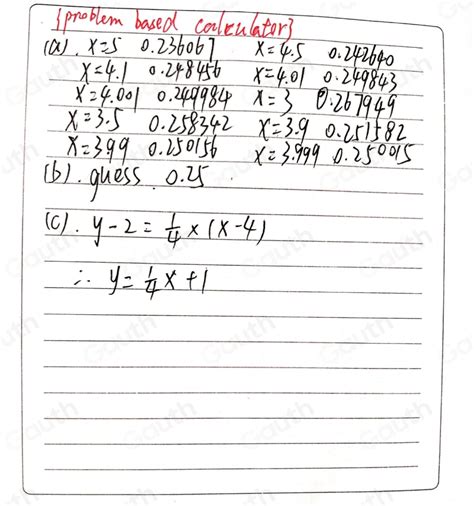 {problem based calculator}
(a). x=5 0.236067 x=4.5 0.242640
x=4.1 0.248456 x=4.01 0.249843
x=4.001 0.249984 x=3 0.267949
x=3.5 0.258342 x=3.9 0.251582
x=3.99 0.250156 x=3.999 0.250015
(b). guess 0.25
(c). y-2=1/4×(x-4)
∴ y=1/4x+1